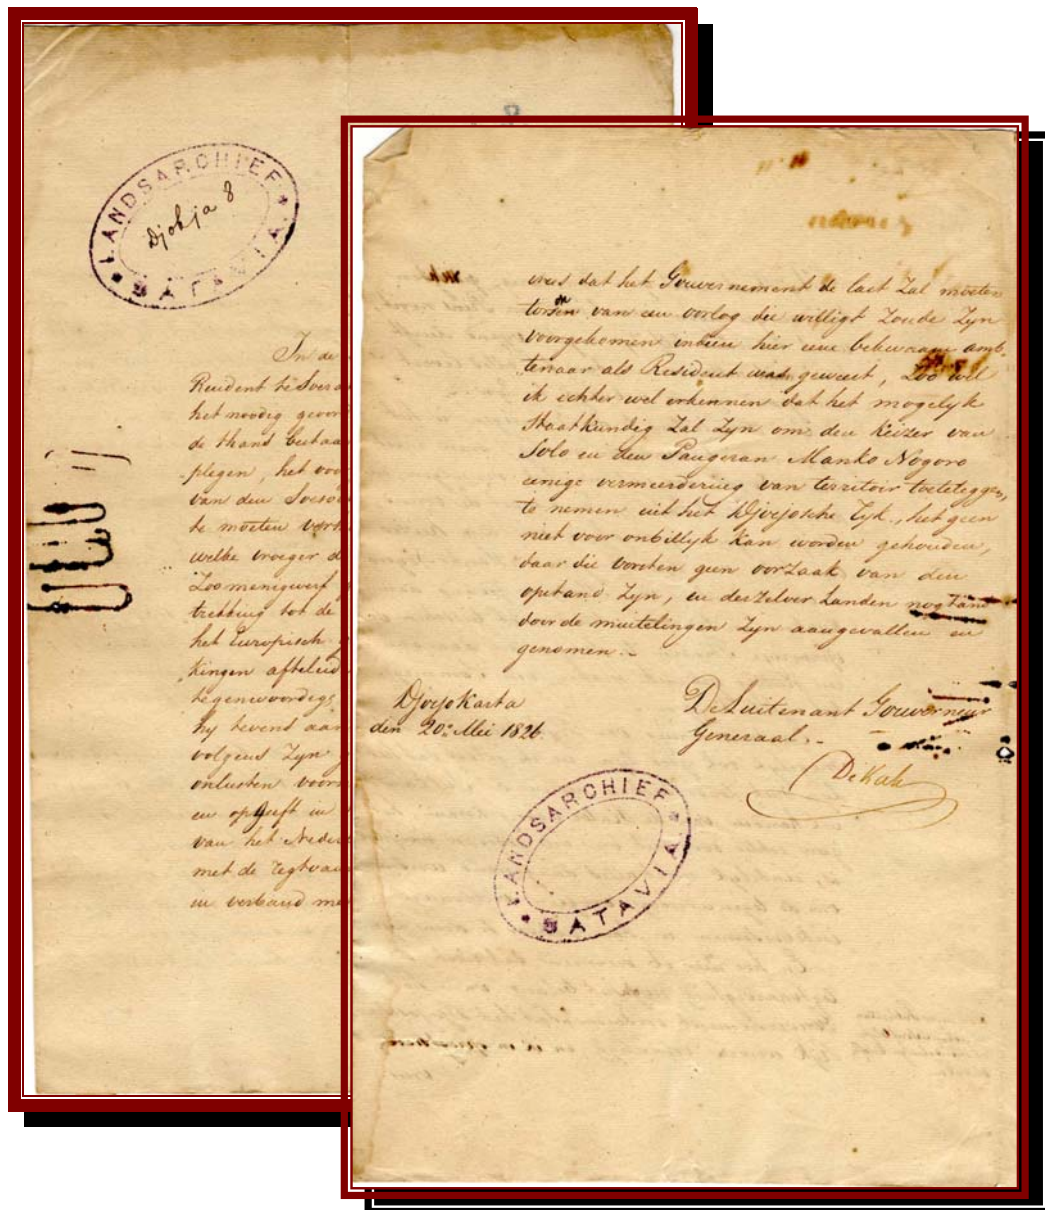 LANDSARCHIEF
Djokja 8
BATAVIA
In de
Resident te Soera
het noodig geoor
de thans bestaa
plegen, het voo
van den Soesoe
te moeten
welke vroeger d
Zoomenigwerf
trekking tot de
het Europisch
kingen afteleid
tegenwoordige
hy tevens aan
volgens Zyn
onlusten voor
en opgeeft in
van het Neder
met de
in verband me
vrees dat het Gouvernement de last Zal moeten
van een oorlog die willigt Zoude Zyn
voorgekomen indien hier eene bekwaam amb-
tenaar als Resident was geweest, Zoo wil
ik echter wel erkennen dat het mogelyk
Staatkundig Zal Zyn om den Keizer van
Solo en den Pangeran Manko Nogoro
eenige vermeerdering van territoir toeteleggen,
te nemen uit het Djocjosche Ryk, het geen
niet voor onbillyk kan worden gehouden,
daar die Vorsten geen oorZaak van den
opstand Zyn, en derzelver Landen nogthans
door de muitelingen Zyn aangevallen en
genomen.-
Djocjokarta
den 20: Mei 1826.
De Luitenant Gouverneur
Generaal.-
De Kock
LANDSARCHIEF
BATAVIA